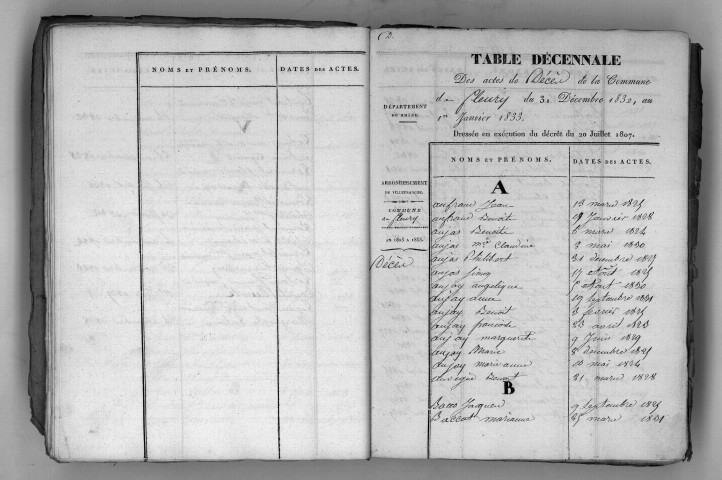 NOMS ET PRÉNOMS. DATES DES ACTES.
TABLE DÉCENNALE
Des actes de Décès de la Commune
de Fleury du 31 Décembre 1832, au
1er Janvier 1833.
Dressée en exécution du décret du 20 Juillet 1807.
DÉPARTEMENT
DU RHÔNE.
ARRONDISSEMENT
DE VILLEFRANCHE.
COMMUNE
de Fleury
Décès
NOMS ET PRÉNOMS. DATES DES ACTES.
A
aufrane Jean 13 mars 1825
aufrane Benoît 19 Janvier 1828
aujas Benoite 8 mars 1824
aujas mie Claudine 2 mai 1830
aujas Philibert 31 décembre 1825
aujas 17 aout 1825
aujay angelique aout 1830
aujay 19 septembre 1831
aujay Benoît 3 fevrier 1825
aujay francois 23 avril 1823
aujay marguerite 9 Juin 1829
aujay Marie 8 décembre 1825
aujay marie anne 10 mai 1824
Benoît 31 mars 1828
B
Jaques 9 septembre 1825
Baccot marianne 25 mars 1831